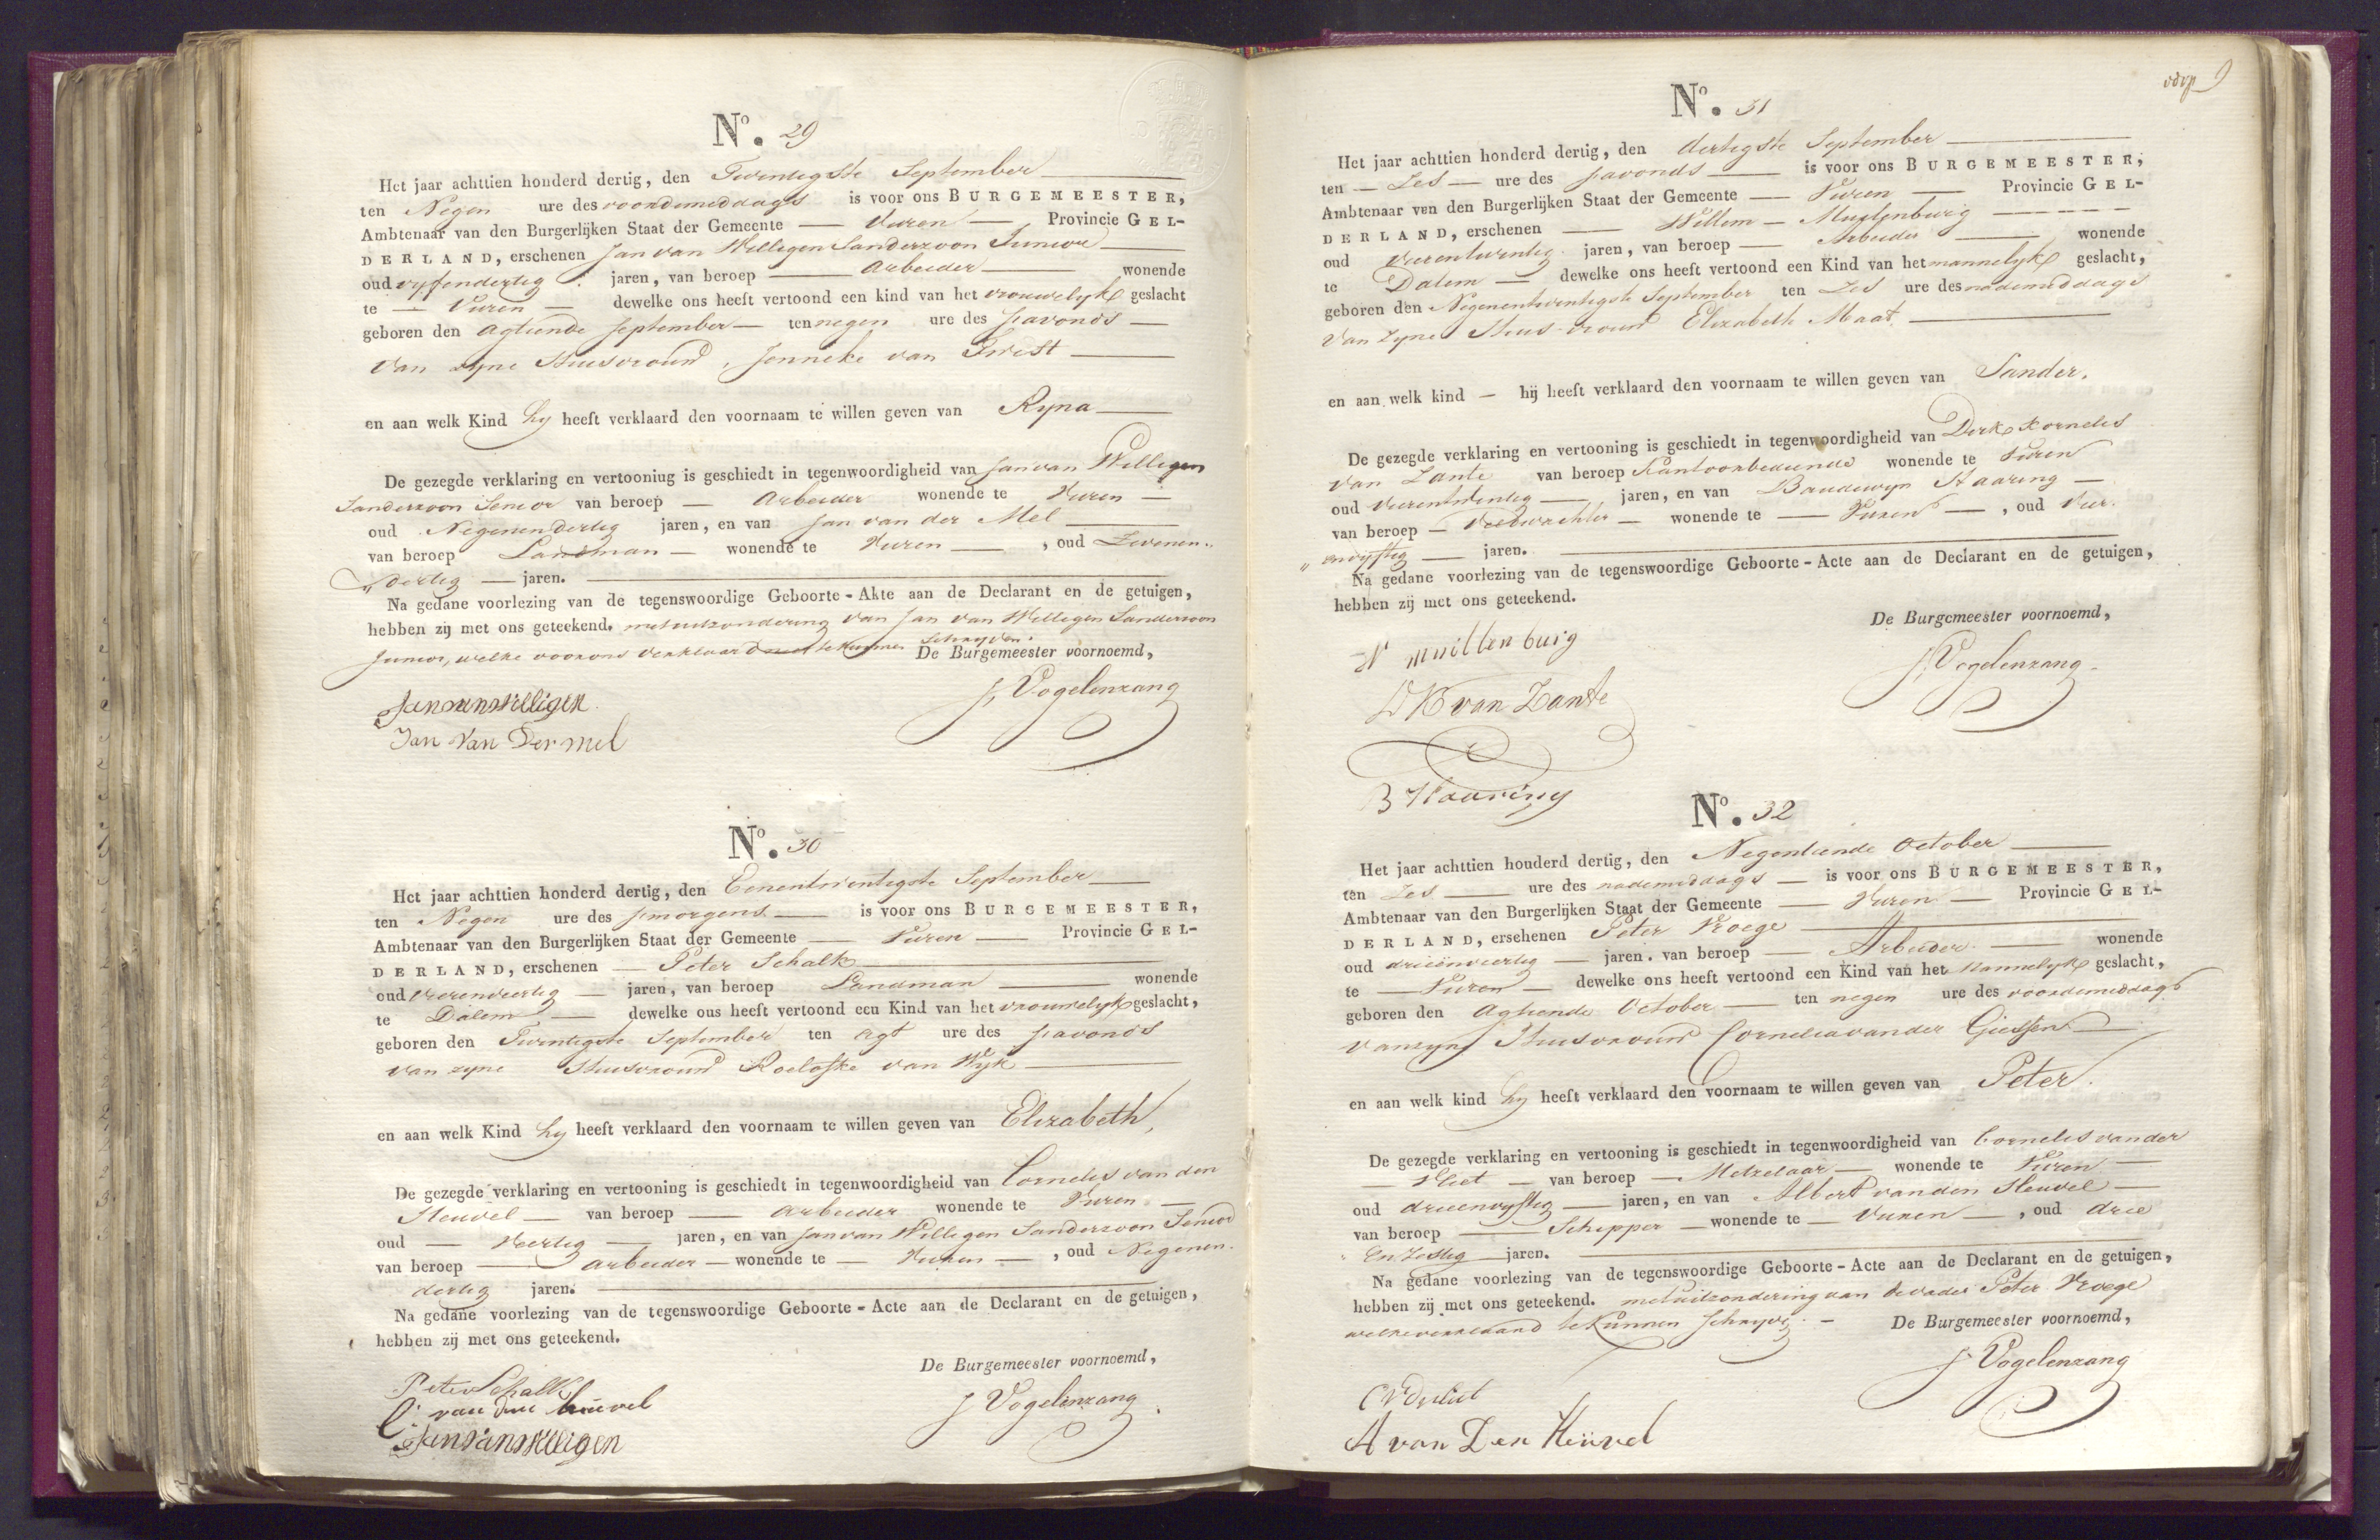 N°. 29
Het jaar achttien honderd dertig, den Twintigste September
ten Negen ure des voordemiddags is voor ons BURGEMEESTER,
Ambtenaar van den Burgerlijken Staat der Gemeente — Vuren — Provincie GEL-
DERLAND, erschenen Jan van Willigen Sanderzoon Junior
oud vyfendertig jaren, van beroep — Arbeider — wonende
te — Vuren — dewelke ons heeft vertoond een kind van het vrouwelyk geslacht
geboren den Agtiende September — ten negen ure des savonds —
van zyne Huisvrouw, Jenneke van Twist —
en aan welk Kind hy heeft verklaard den voornaam te willen geven van Ryna —
De gezegde verklaring en vertooniug is geschiedt in tegenwoordigheid van Jan van Willigen
Sanderzoon Senior van beroep — Arbeider wonende te Vuren —
oud Negenendertig jaren, en van Jan van der Mel —
van beroep Landman — wonende te Vuren — , oud Zevenen„
„dertig — jaren.
Na gedane voorlezing van de tegenswoordige Geboorte-Akte aan de Declarant en de getuigen,
hebben zij met ons geteekend. met uitzondering van Jan van Willigen Sanderzoon
Junior, welke voor ons verklaard niet te kunnen Schryven.
De Burgemeester voornoemd,
J. Vogelenzang
Jan van Willigen
Jan van Der mel
N°. 30
Het jaar achttien honderd dertig, den Eenentwintigste September —
ten Negen ure des smorgens — is voor ons BURGEMEESTER,
Ambtenaar van den Burgerlijken Staat der Gemeente — Vuren — Provincie GEL-
DERLAND, erschenen — Peter Schalk —
oud Vierenveertig — jaren, van beroep Landman — wonende
te Dalem — dewelke ons heeft vertoond een Kind van het vrouwelyk geslacht,
geboren den Twintigste September ten Agt ure des savonds
van zyne Huisvrouw Roelofke van Wyk —
en aan welk Kind hy heeft verklaard den voornaam te willen geven van Elizabeth,
De gezegde verklaring en vertooning is geschiedt in tegenwoordigheid van Cornelis van den
Heuvel — van beroep — Arbeider wonende te Vuren —
oud — Veertig — jaren, en van Jan van Willigen Sanderzoon Senior
van beroep — Arbeider — wonende te — Vuren — , oud Negenen-
dertig jaren.
Na gedane voorlezing van de tegenswoordige Geboorte-Acte aan de Declarant en de getuigen,
hebben zij met ons geteekend.
De Burgemeester voornoemd,
J Vogelenzang
Peter Schalk
C: van den heuvel
Jan van Willigen
9
N°. 31
Het jaar achttien honderd dertig, den dertigste September —
ten — Zes — ure des savonds — is voor ons BURGEMEESTER,
Ambtenaar van den Burgerlijken Staat der Gemeente — Vuren — Provincie GEL-
DERLAND, erschenen — Willem — Muilenburg —
oud vierentwintig jaren, van beroep — Arbeider — wonende
te Dalem — dewelke ons heeft vertoond een Kind van het mannelyk geslacht,
geboren den Negenentwintigste September ten Zes ure des nademiddags
van zyne Huis-vrouw Elizabeth Maat.
en aan welk kind — hij heeft verklaard den voornaam te willen geven van Sander.
De gezegde verklaring en vertooning is geschiedt in tegenwoordigheid van Dirk Kornelis
van Zante van beroep Kantoorbediende wonende te Vuren
oud vierentwintig — jaren, en van Boudewyn Haaring —
van beroep — Veldwachter — wonende te — Vuren — , oud Vier-
„envyftig — jaren.
Na gedane voorlezing van de tegenswoordige Geboorte-Acte aan de Declarant en de getuigen,
hebben zij met ons geteekend.
De Burgemeester voornoemd,
J. Vogelenzang
W muillenburg
D K van Zante
B Haaring
N°. 32
Het jaar achttien honderd dertig, den Negentiende October —
ten Zes — ure des nademiddags — is voor ons BURGEMEESTER,
Ambtenaar van den Burgerlijken Staat der Gemeente — Vuren — Provincie GEL-
DERLAND, erschenen Peter Vroege —
oud drieënveertig — jaren. van beroep — Arbeider. — wonende
te — Vuren — dewelke ons heeft vertoond een Kind van het Mannelyk geslacht,
geboren den Agtiende October — ten negen ure des voordemiddags
van zyn Huisvrouw Cornelia van der Giessen —
en aan welk kind hy heeft verklaard den voornaam te willen geven van Peter.
De gezegde verklaring en vertooning is geschiedt in tegenwoordigheid van Cornelis van der
— Vliet — van beroep — Metzelaar — wonende te Vuren —
oud drieenvyftig — jaren, en van Albert van den Heuvel —
van beroep — Schipper — wonende te — Vuren — , oud drie
„en Zestig jaren.
Na gedane voorlezing van de tegenswoordige Geboorte-Acte aan de Declarant en de getuigen,
hebben zij met ons geteekend. met uitzondering van de vader Peter Vroege
welke verklaard te kunnen Schryve. —
De Burgemeester voornoemd,
J. Vogelenzang
C V D Vliet
A van Den Heuvel